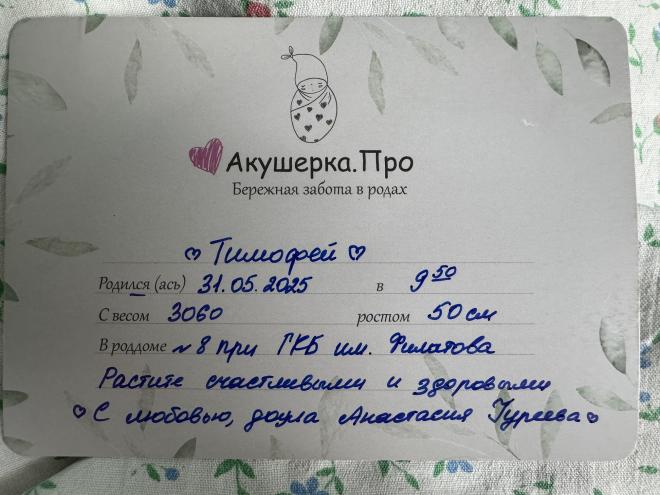 Акушерка.Про
Бережная забота в родах
Тимофей
Родился (ась) 31.05.2025 в 9 50
С весом 3060 ростом 50 см
В роддоме №8 при ГКБ им. Филатова
Растите счастливыми и здоровыми
С любовью, доула Анастасия Гуреева